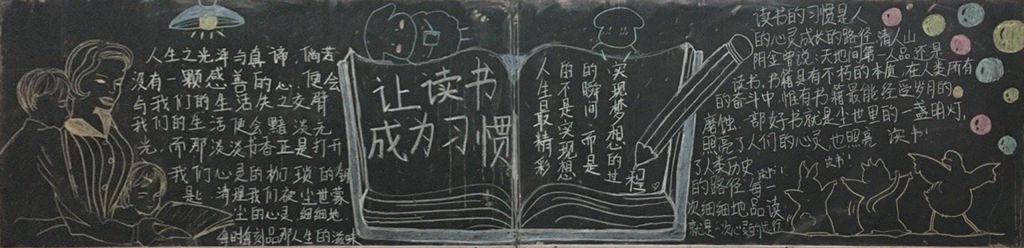 人生之光泽与真谛，倘若
没有一颗感善的心，便会
与我们的生活失之交臂
我们的生活便会黯淡无
光，而那淡淡书香正是打开
我们心灵的枷锁的钥
是，清理我们被尘世蒙
尘的心灵，细细地
每时每刻品那人生的滋味
让读书
成为习惯
人生最精彩
的不是实现梦想
的瞬间，而是
实现梦想的过
程
读书的习惯是人
的心灵成长的路径，清人山
阴金曾说：天地间第一人品，还是
读书，书籍具有不朽的本质，在人类所有
的奋斗中，惟有书籍最能经受岁月的
魔蚀，一部好书就是尘世里的一盏明灯，
照亮了人们的心灵，也照亮
了人类历史
的路径，每一
次细细地品读
就是一次心灵的
读书！
读书！
读书！